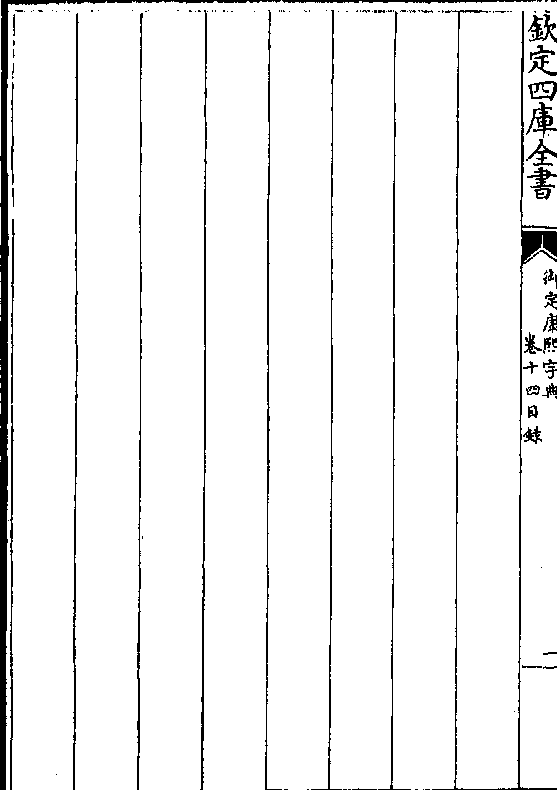 欽定四庫全書
御定康熙字典
卷十四目錄
一